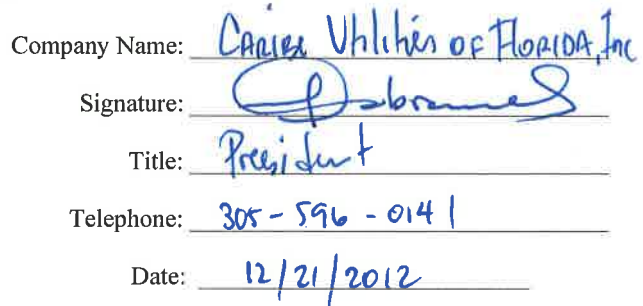 Company Name: Caribe Utilities of Florida, Inc
Signature:
Title: President
Telephone: 305-596-0141
Date: 12/21/2012